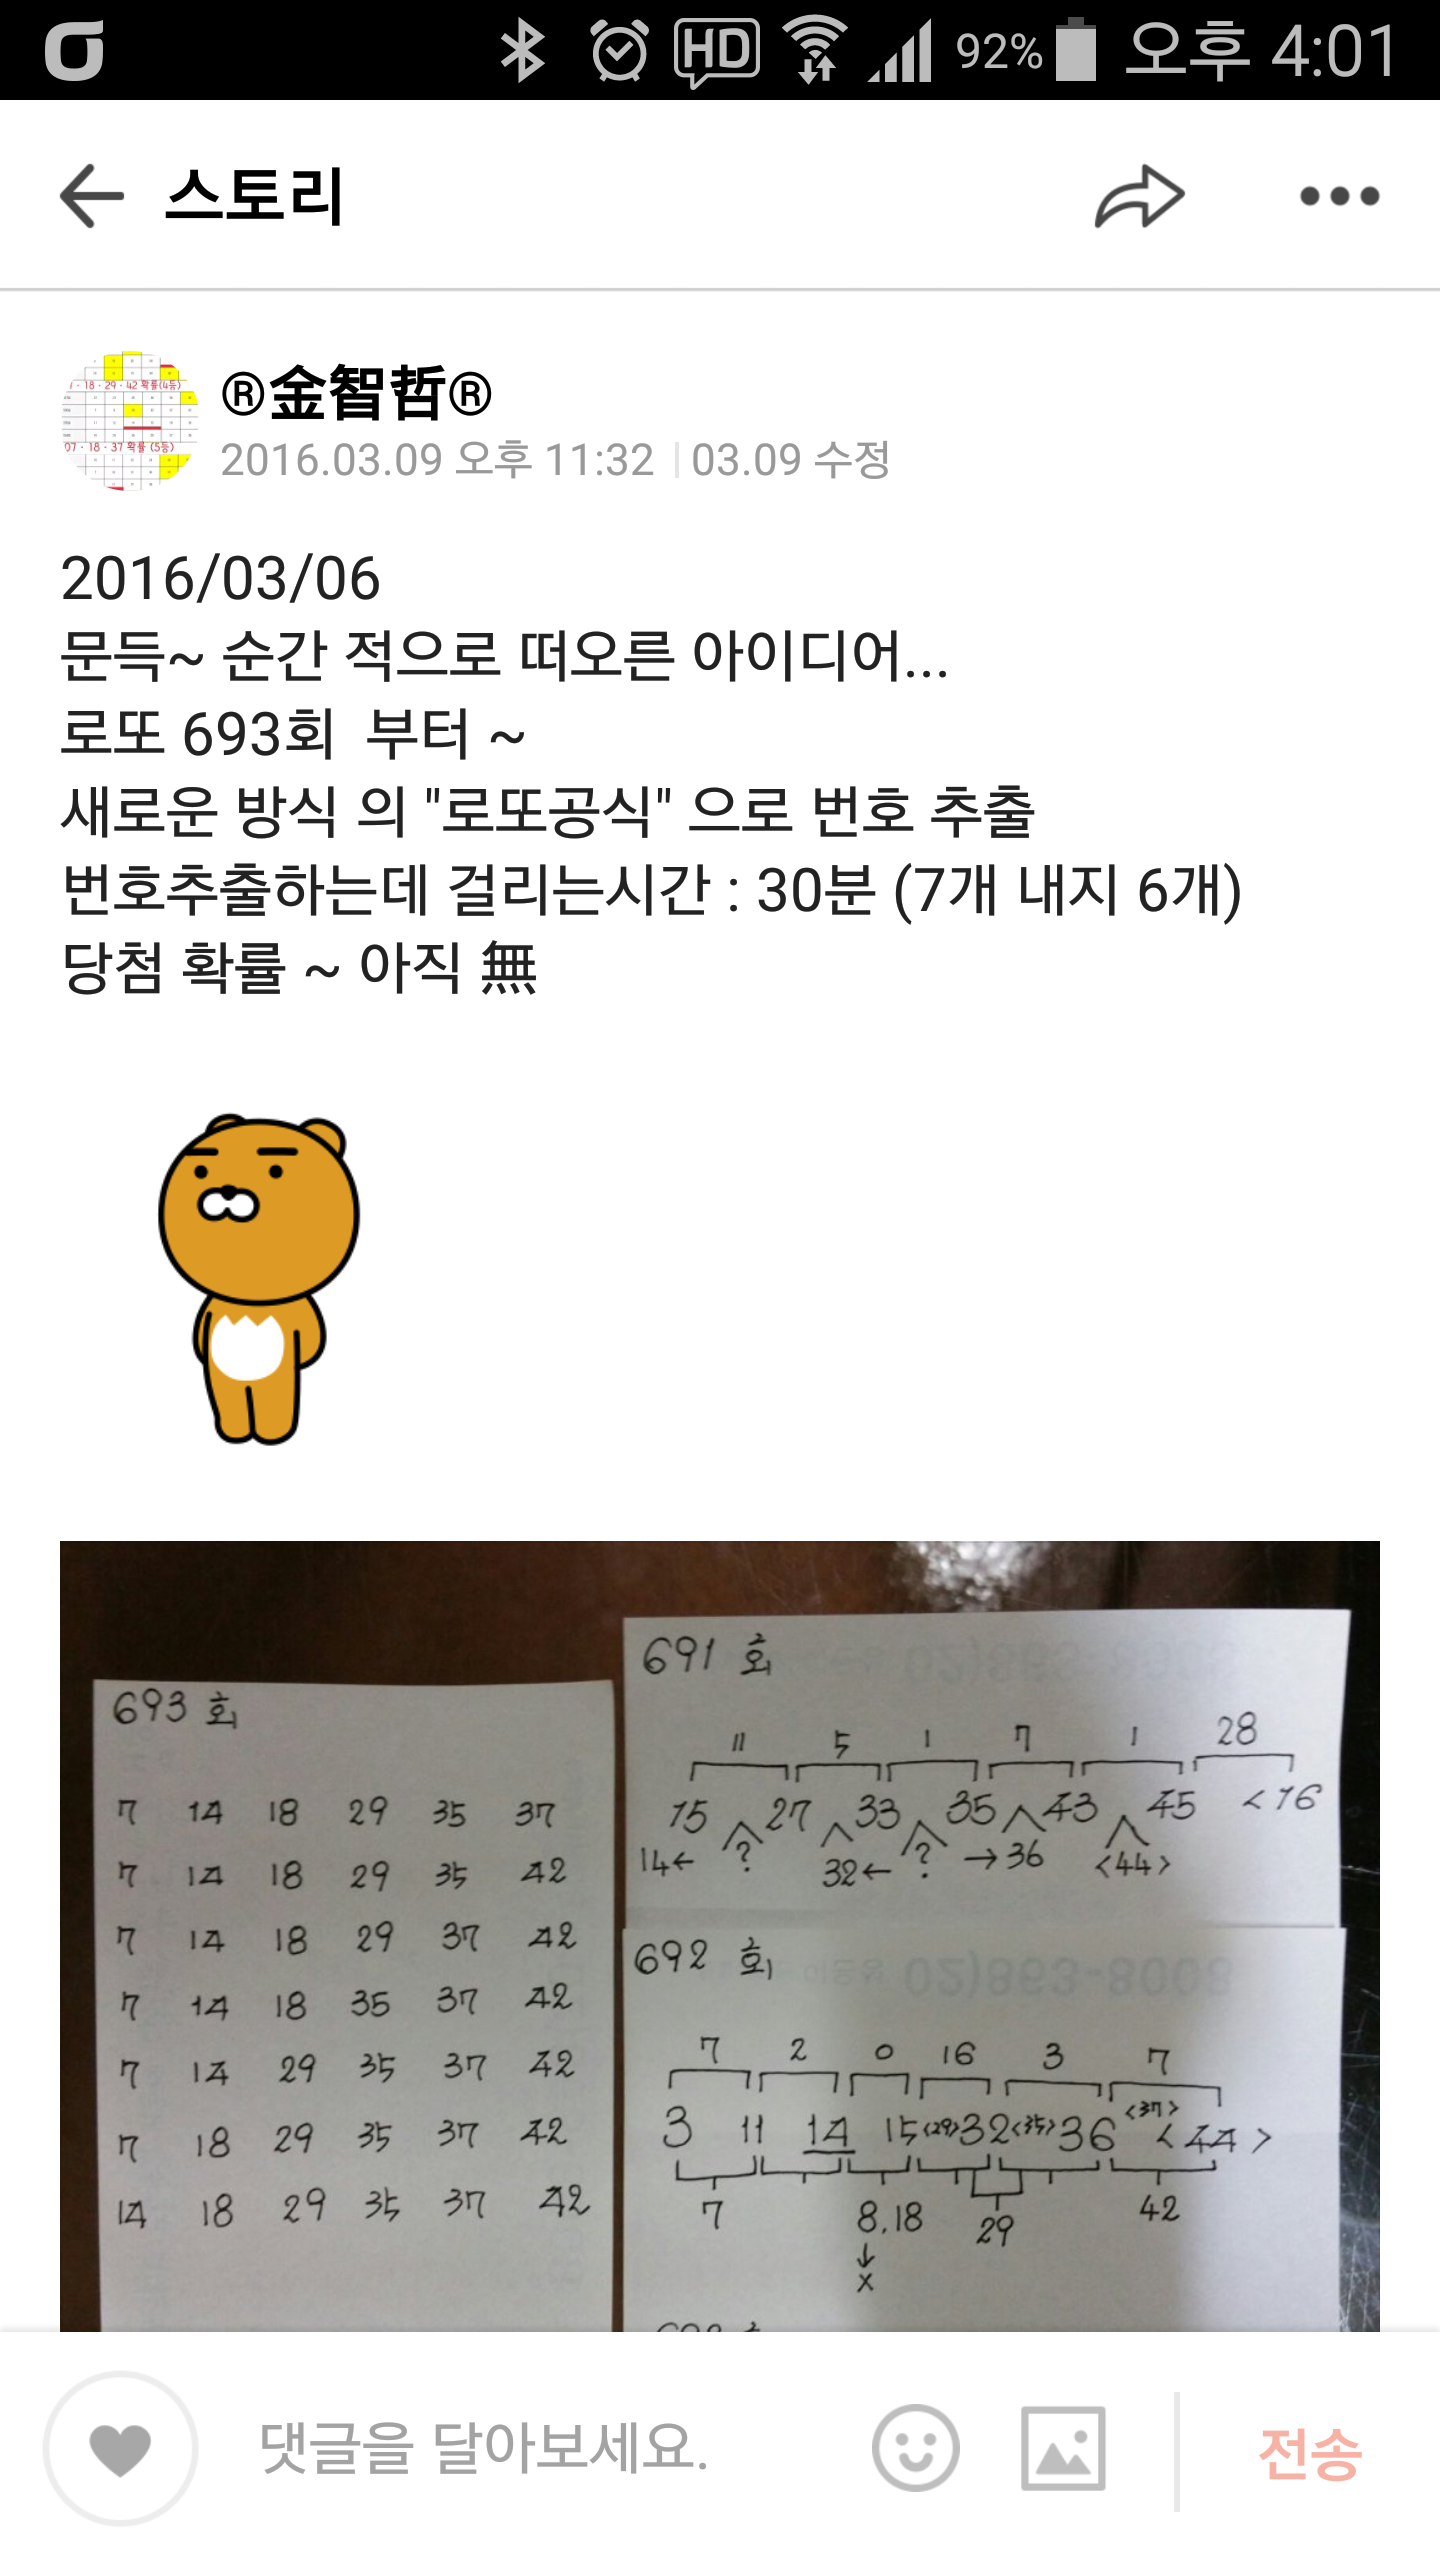 HD 92% 오후 4:01
스토리
®金智哲®
2016.03.09 오후 11:32 | 03.09 수정
2016/03/06
문득~ 순간 적으로 떠오른 아이디어...
로또 693회 부터 ~
새로운 방식 의 "로또공식" 으로 번호 추출
번호추출하는데 걸리는시간 : 30분 (7개 내지 6개)
당첨 확률 ~ 아직 無
693 회
7 14 18 29 35 37
7 14 18 29 35 42
7 14 18 29 37 42
7 14 18 35 37 42
7 14 29 35 37 42
7 18 29 35 37 42
14 18 29 35 37 42
691 회
11 5 1 7 1 28
15 27 33 35 43 45 <16
14← ? 32← ? →36 <44>
692 회
7 2 0 16 3 7
3 11 14 15 <29> 32 <35> 36 <37> <44>
7 8,18 29 42
↓
x
댓글을 달아보세요.
전송